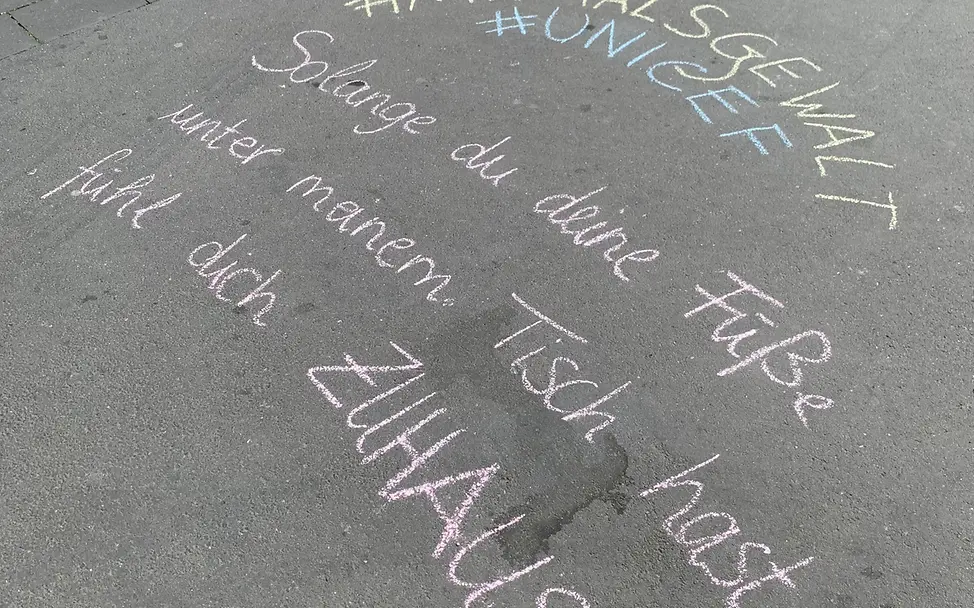 #NIEMALSGEWALT
#UNICEF
Solange du deine Füße
unter meinem Tisch hast
fühl dich ZUHAUS